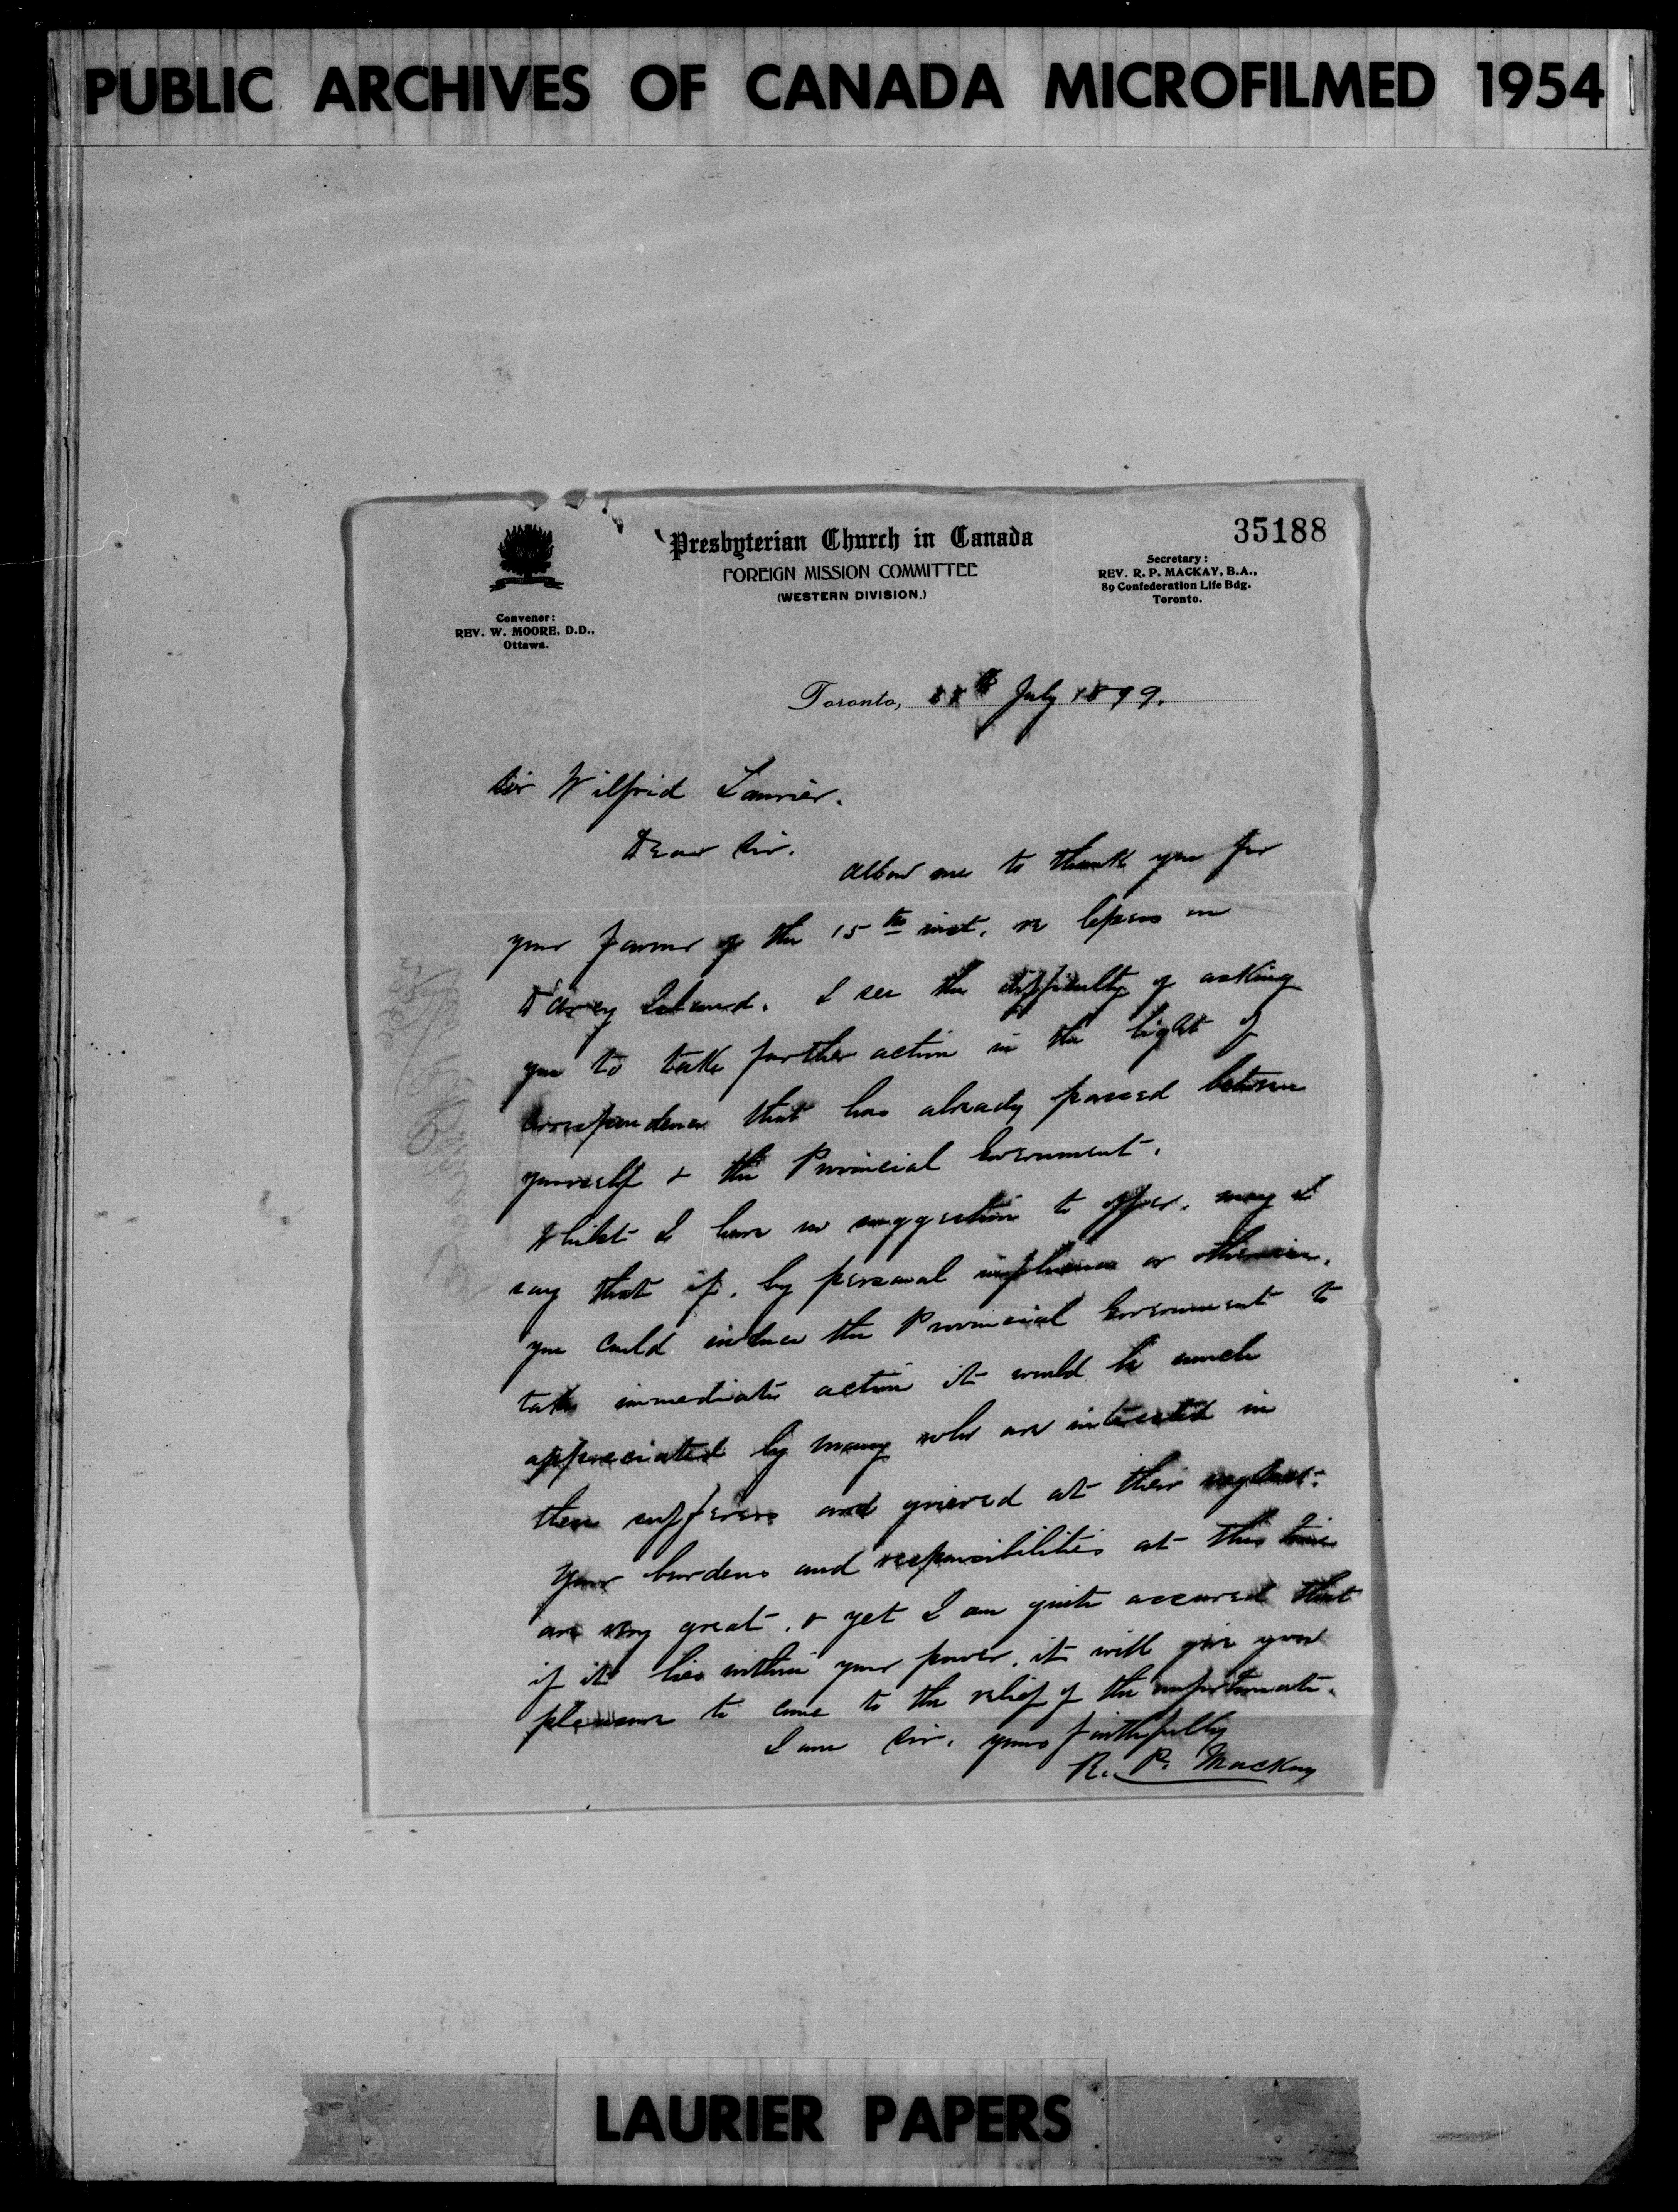 PUBLIC ARCHIVES OF CANADA MICROFILMED 1954
35188
Presbyterian Church in Canada
FOREIGN MISSION COMMITTEE
(WESTERN DIVISION.)
Secretary:
REV. R. P. MACKAY, B.A.,
89 Confederation Life Bdg.
Toronto.
Convener:
REV. W. MOORE, D.D.,
Ottawa.
Toronto, July 1899.
Sir Wilfrid Laurier.
Dear Sir.
Allow me to thank you for
your favour of the 15th inst. re lepers on
D'Arcy Island. I see the difficulty of asking
you to take further action in the light of
correspondence that has already passed between
yourself & the Provincial Government.
Whilst I have no suggestion to offer, may I
say that if, by personal influence or otherwise,
you could induce the Provincial Government to
take immediate action it would be much
appreciated by many who are interested in
these sufferers and grieved at their neglect.
Your burdens and responsibilities at this time
are very great, & yet I am quite assured that
if it lies within your power, it will give you
pleasure to come to the relief of the unfortunate.
I am Sir, yours faithfully
R. P. MacKay
LAURIER PAPERS